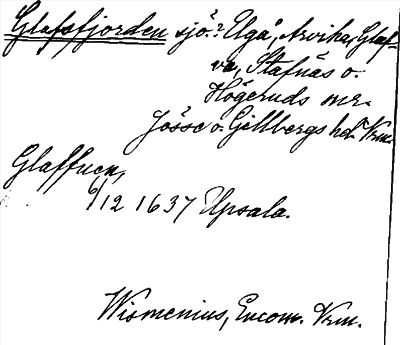 Glafsfjorden sjö: Elgå, Arvika, Glaf-
va, Stafnäs o.
Högeruds snr.
Jösse o. Gillbergs hd. Vrm.
Glaffuen,
6/12 1637 Upsala.
Wismenius, Encom. Vrm.